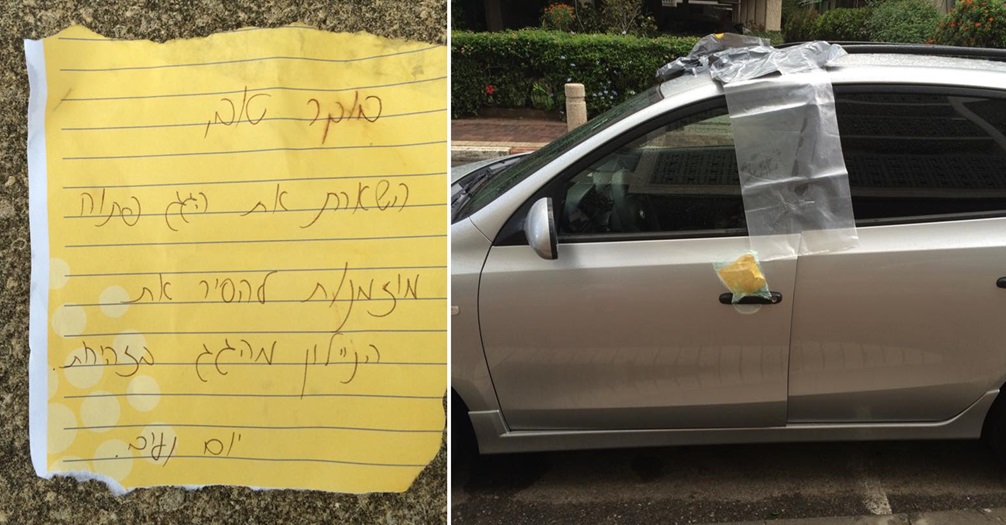 בוקר טוב,
השארת את הגג פתוח
מוזמן/ת להסיר את
הניילון מהגג בזהירות.
יום נעים.